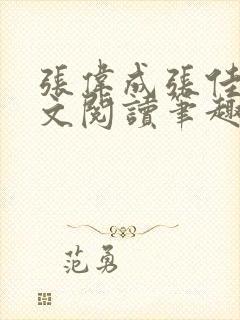 張偉成張佳
文閱讀筆趣
范勇